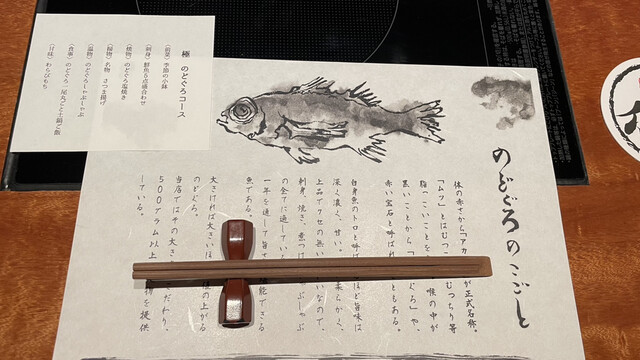 のどぐろのこごと
体の赤さから「アカ
が正式名称。
「ムツ」とはむつ
むつちり等
脂っこいことを
喉の中が
黒いことから「
ぐろ」や、
赤い宝石と呼ばれ
ともある。
白身魚のトロと呼ば
ほど旨味は
深く濃く、甘い。
柔らかく、
上品でクセの無い
いなので、
刺身、焼き、煮つけ
ゃぶしゃぶ
の全てに適している
一年を通して旨さ
能できる
魚である。
大きければ大きいほ
値の上がる
のどぐろ。
当店ではその大きさ
だわり、
500グラム以上
物を提供
している。
極 のどぐろコース
(前菜) 季節の小鉢
(刺身) 鮮魚5点盛合わせ
(焼物) のどぐろ塩焼き
(揚物) 名物 さつま揚げ
(鍋物) のどぐろしゃぶしゃぶ
(食事) のどぐろ一尾丸ごと土鍋ご飯
(甘味) わらびもち